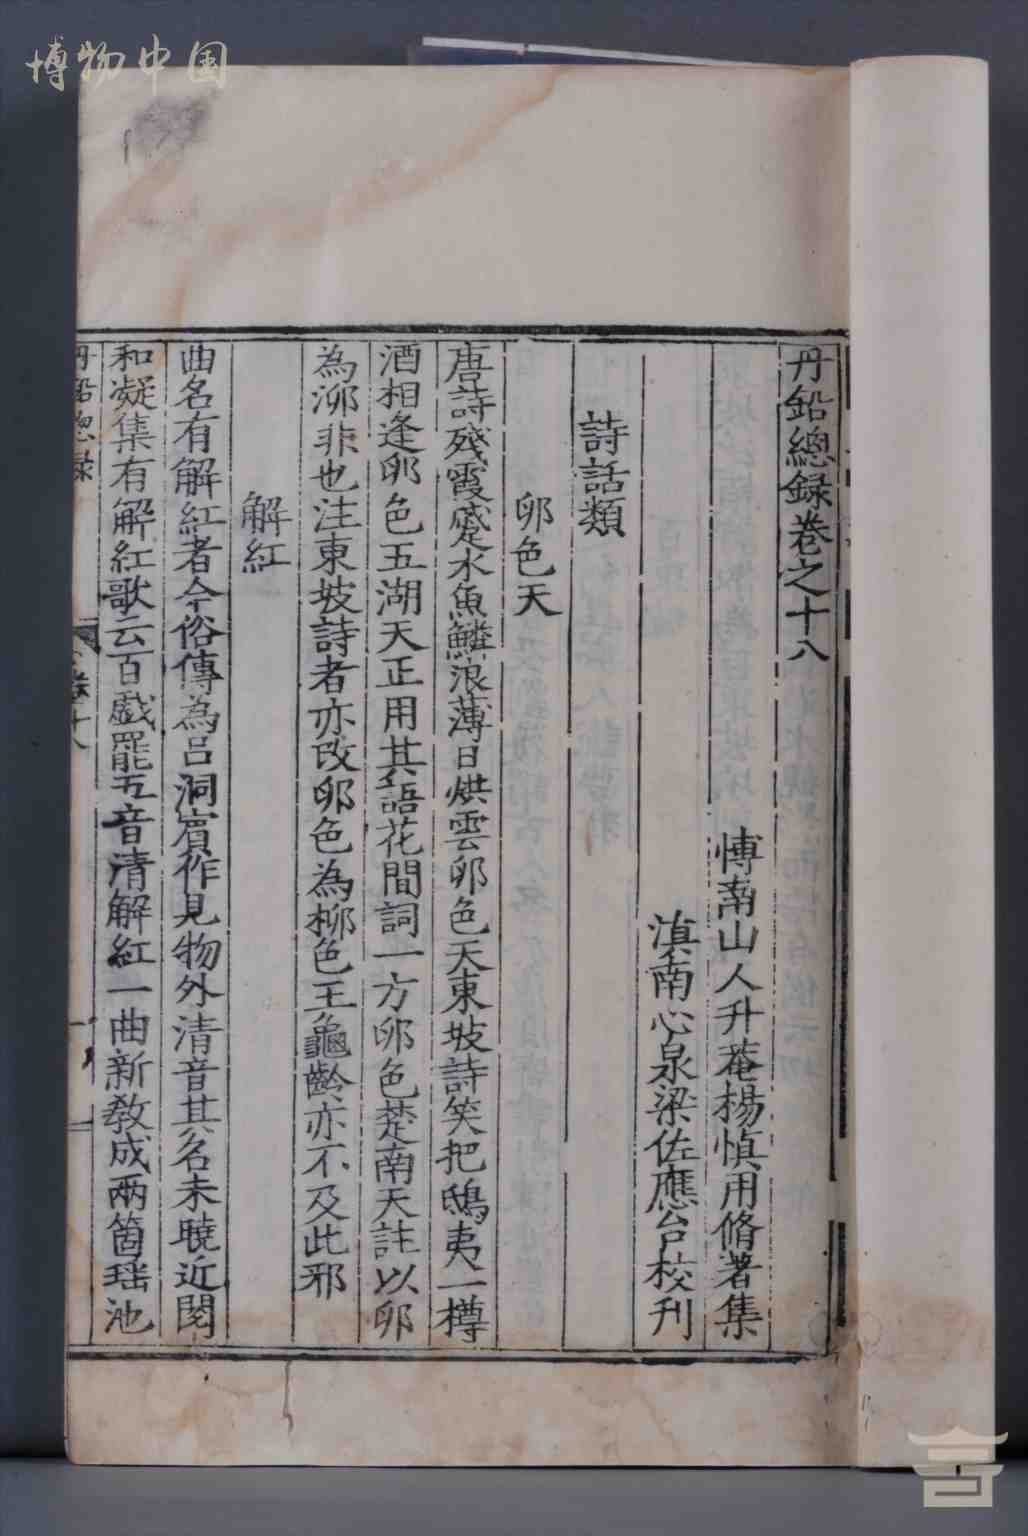 博物中国
丹鉛總録卷之十八
博南山人升菴楊慎用脩著集
滇南心泉梁佐應台校刋
詩話類
卵色天
唐詩殘霞蹙水魚鱗浪薄日烘雲卵色天東坡詩笑把鴟夷一樽
酒相逢卵色五湖天正用其語花間詞一方卵色楚南天註以卵
為泖非也注東坡詩者亦改卵色為柳色王龜齡亦不及此邪
解紅
曲名有解紅者今俗傳為吕洞賔作見物外清音其名未曉近閱
和凝集有解紅歌云百戲罷五音清解紅一曲新教成兩箇瑶池
丹鉛總录
卷十八